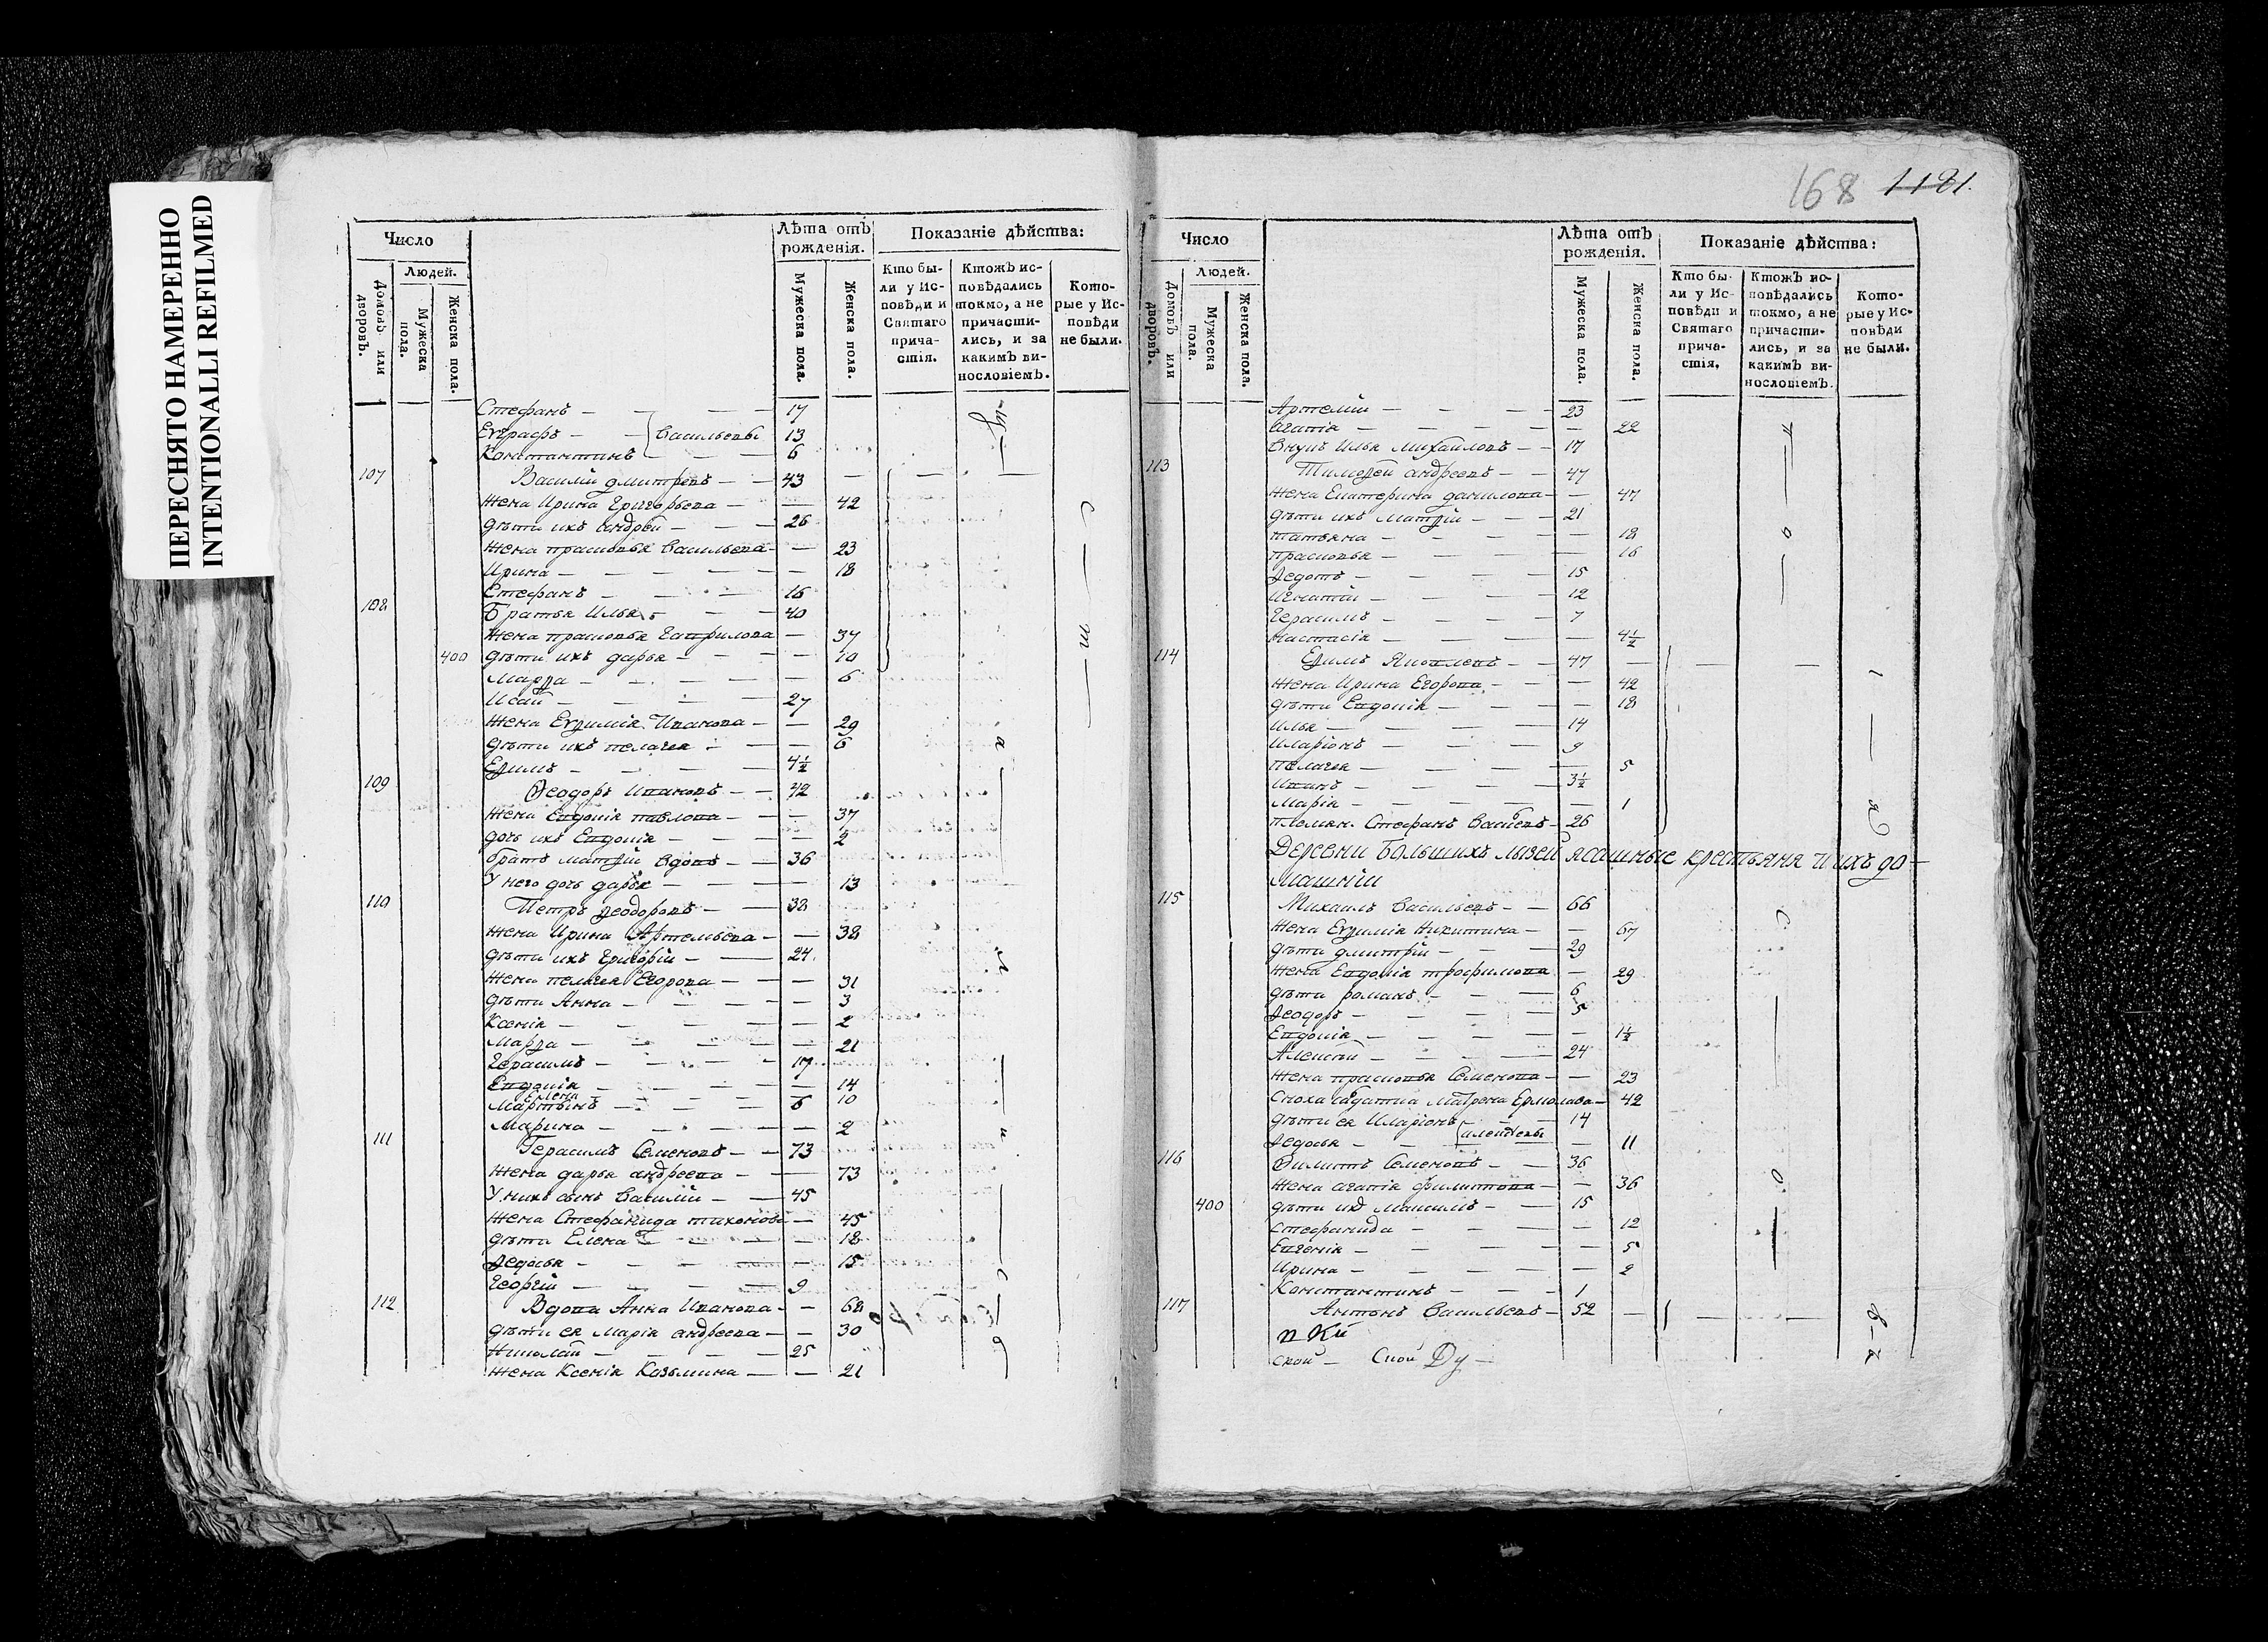 ПЕРЕСНЯТО НАМЕРЕННО
INTENTIONALLI REFILMED
168 1181.
Число
Людей.
Домовъ или дворовъ.
Мужеска пола.
Женска пола.
Лѣта отъ рожденія.
Мужеска пола.
Женска пола.
Показаніе дѣйства:
Кто бы-
ли у Ис-
повѣди и
Святаго
прича-
стія.
Ктожъ ис-
повѣдались
токмо, а не
причасти-
лись, и за
какимъ ви-
нословіемъ.
Кото-
рые у Ис-
повѣди
не были.
Стефанъ — — — 17
Евграфъ — — Васильевы 13
Константинъ — — 6
107 Василій Дмитревъ — — 43
Жена Ирина Григорьева — — 42
Дѣти ихъ Андрей — — — 26
Жена Прасковья Васильева — — 23
Ирина — — — — — 18
Стефанъ — — — 16
108 Братья Илья — — 40
Жена Прасковья Гаврилова — 37
400 Дѣти ихъ Дарья — — — — 10
Марѳа — — — — — 6
Исай — — — 27
Жена Евѳимія Иванова — — 29
Дѣти ихъ Пелагея — — — 6
Еѳимъ — — — — 4½
109 Ѳеодоръ Ивановъ — — 42
Жена Евдокія Павлова — — — 37
Дочь ихъ Евдокія — — — — 2
Братъ Матѳій вдовъ — — 36
У него дочь Дарья — — — — 13
110 Петръ Ѳеодоровъ — — 38
Жена Ирина Артемьева — — 38
Дѣти ихъ Григорій — — 24
Жена Пелагея Егорова — — — 31
Дѣти Анна — — — — — 3
Ксенія — — — — — 2
Марѳа — — — — — 21
Герасимъ — — — — 17
Евдокія — — — — — 14
Елена 10
Мартынъ — — — — 6
Марина — — — — — 2
111 Герасимъ Семеновъ — — 73
Жена Дарья Андреева — — 73
У нихъ сынъ Василій — — 45
Жена Стефанида Тихонова — 45
Дѣти Елена — — — — 18
Ѳедосья — — — — — 15
Георгій — — — — 9
112 Вдова Анна Иванова — — 68
Дѣти ея Марія Андреева — — 30
Николай — — — — 25
Жена Ксенія Козьмина — — 21
Число
Людей.
Домовъ или дворовъ.
Мужеска пола.
Женска пола.
Лѣта отъ рожденія.
Мужеска пола.
Женска пола.
Показаніе дѣйства:
Кто бы-
ли у Ис-
повѣди и
Святаго
прича-
стія.
Ктожъ ис-
повѣдались
токмо, а не
причасти-
лись, и за
какимъ ви-
нословіемъ.
Кото-
рые у Ис-
повѣди
не были.
Артемій — — — — 23
Агапія — — — — — — 22
Внукъ Илья Михайловъ — — 17
113 Тимоѳей Андреевъ — — 47
Жена Екатерина Данилова — — 47
Дѣти ихъ Матѳій — — — 21
Татьяна — — — — — 18
Прасковья — — — — 16
Ѳедотъ — — — — 15
Игнатій — — — — 12
Герасимъ — — — — 7
Настасія — — — — — 4½
114 Еѳимъ Яковлевъ — — 47
Жена Ирина Егорова — — — 42
Дѣти Евдокія — — — — 18
Илья — — — — 14
Иларіонъ — — — 9
Пелагея — — — — — 5
Иванъ — — — — 3½
Марія — — — — — 1
Племян. Стефанъ Васильевъ — 26
Деревни Большихъ Лызей ясашные крестьяня и ихъ до-
машніи
115 Михаилъ Васильевъ — — 66
Жена Евѳимія Никитина — — 67
Дѣти Дмитрій — — — 29
Жена Евдокія Трофимова — 29
Дѣти Романъ — — — 6
Ѳеодоръ — — — — 5
Евдокія — — — — — 1½
Алексѣй — — — — 24
Жена Прасковья Семенова — — 23
Сноха Матрена Ермолаева — 42
Дѣти ея Иларіонъ 14
Ѳедосья — — Алексѣевы — 11
116 Филиппъ Семеновъ — — 36
Жена Агапія Филиппова — — 36
400 Дѣти ихъ Максимъ — — 15
Стефанида — — — — 12
Евгенія — — — — — 5
Ирина — — — — — 2
Константинъ — — — 1
117 Антонъ Васильевъ — 52